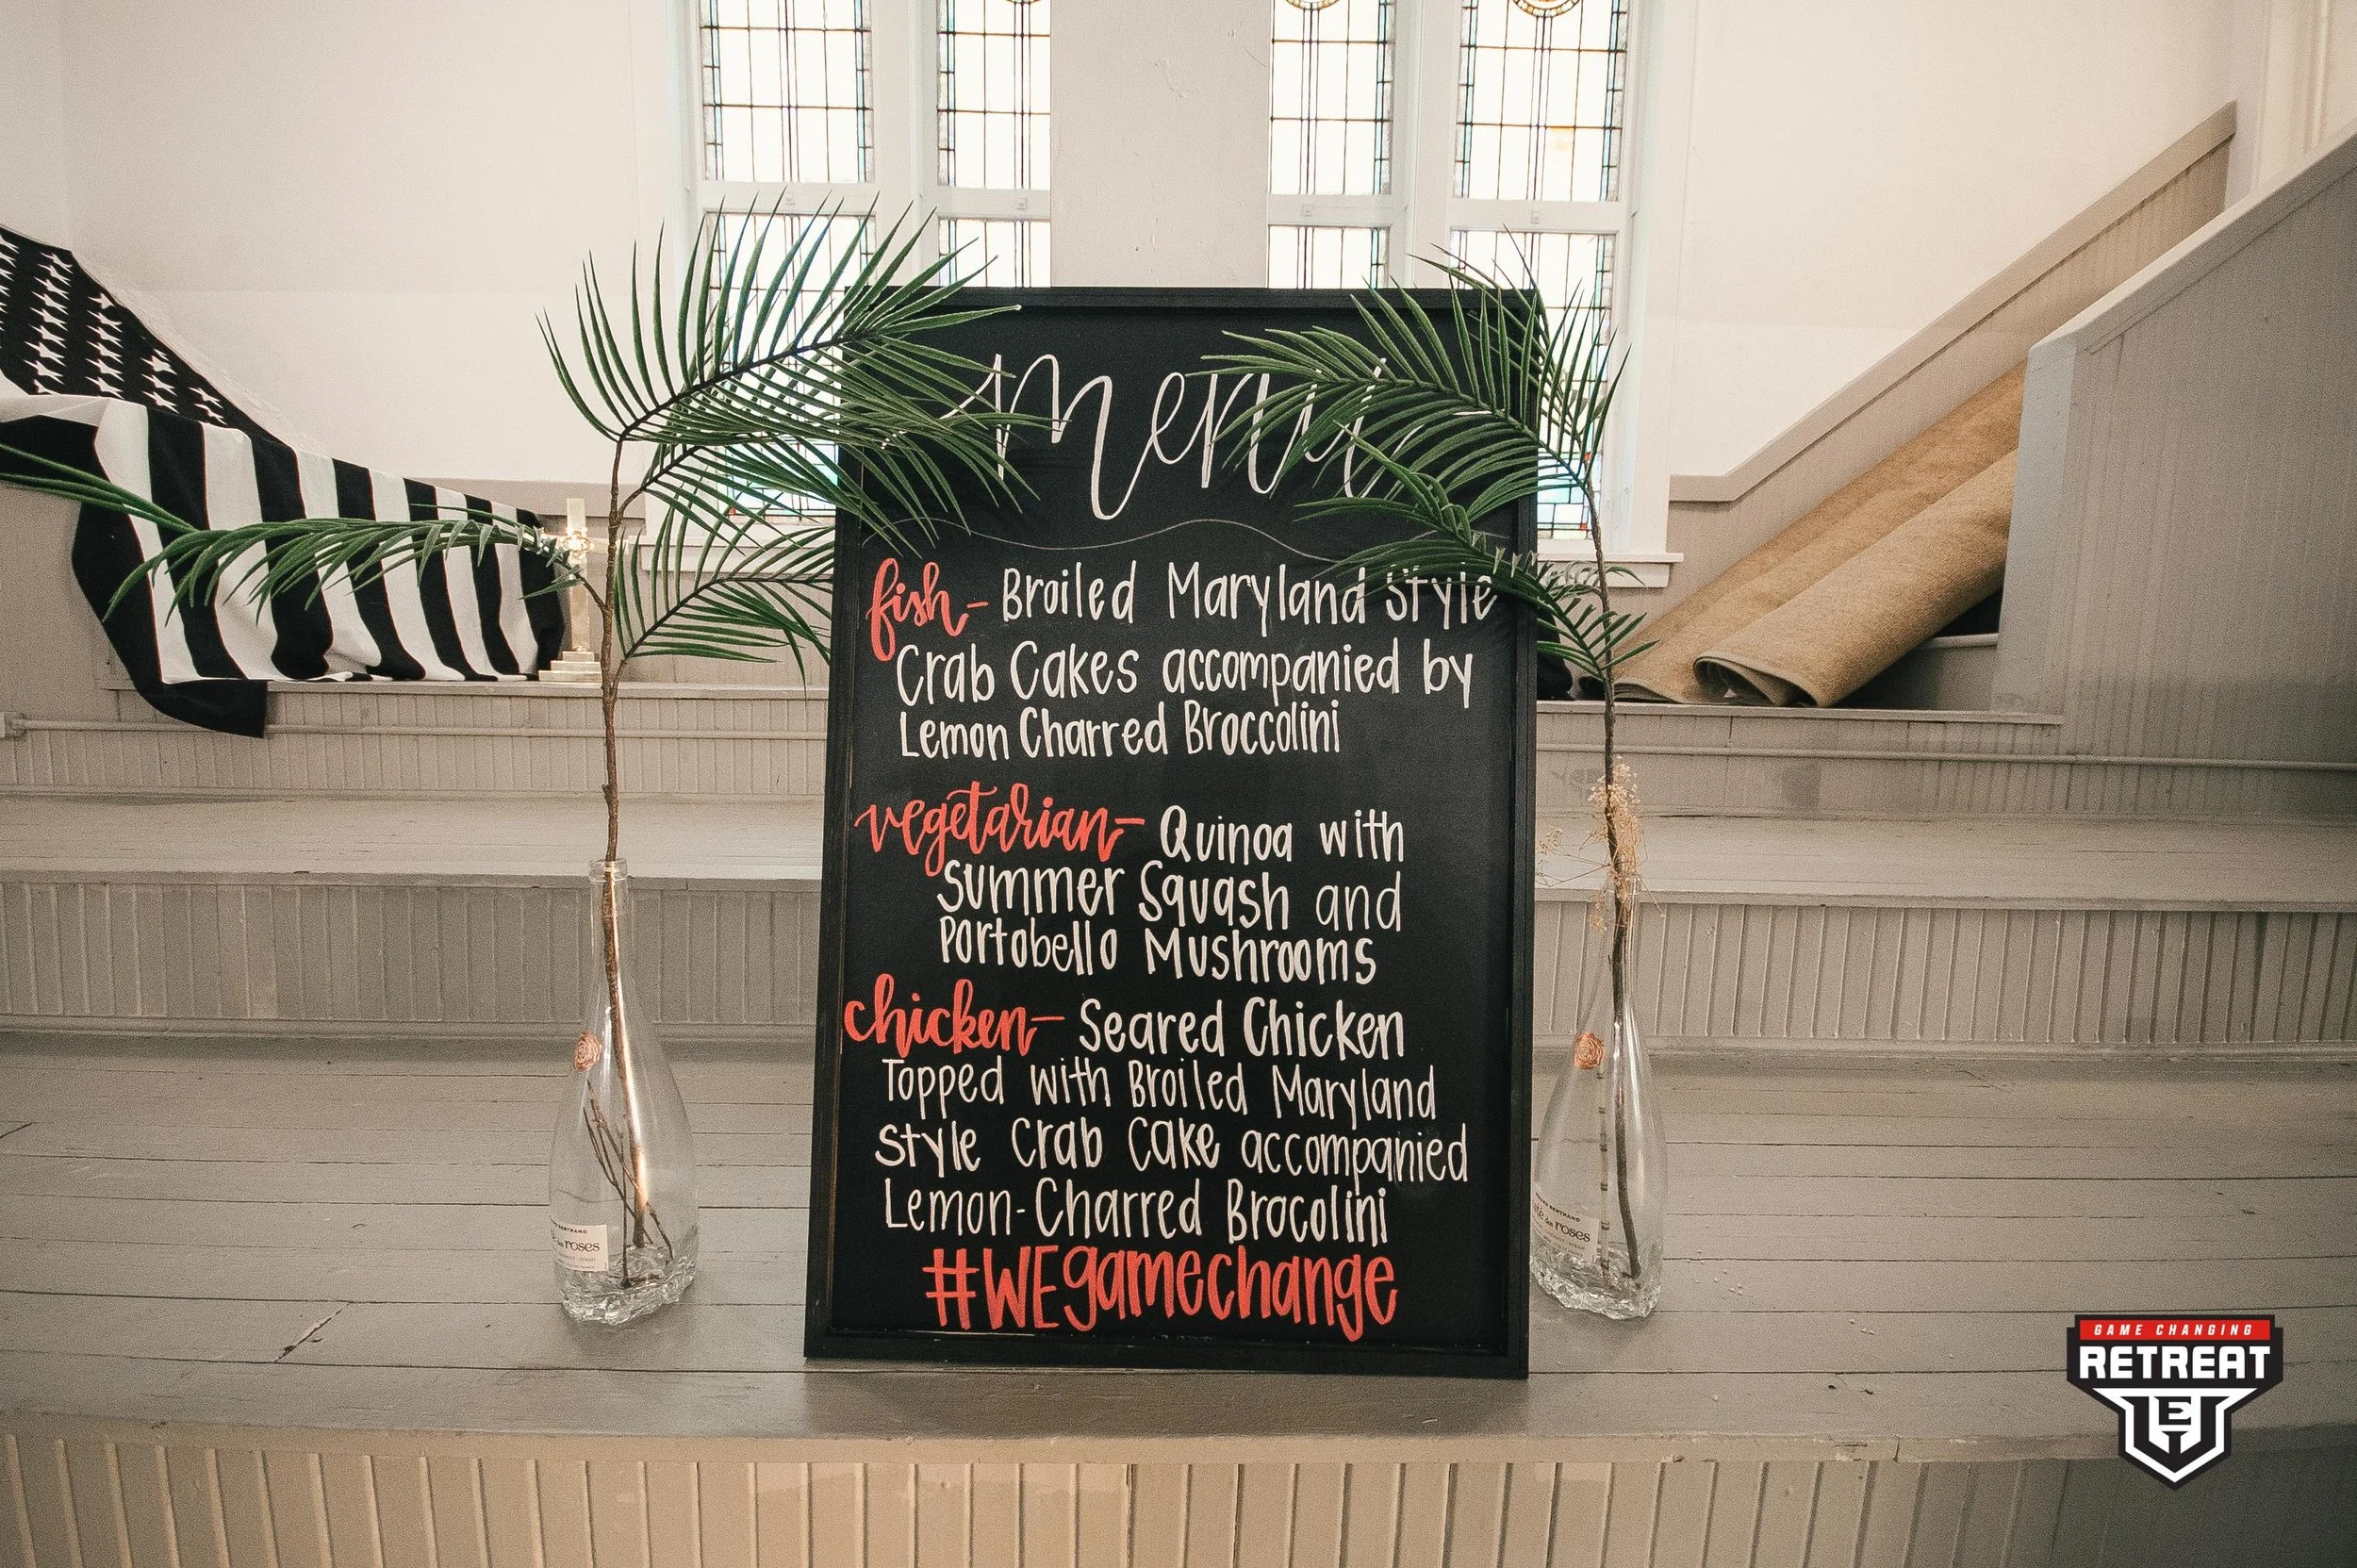 menu
fish- Broiled Maryland Style
Crab Cakes accompanied by
Lemon Charred Broccolini
vegetarian- Quinoa with
Summer Squash and
Portobello Mushrooms
chicken- Seared Chicken
Topped with Broiled Maryland
Style Crab Cake accompanied
Lemon-Charred Brocolini
#WEgamechange
roses
des roses
GAME CHANGING
RETREAT